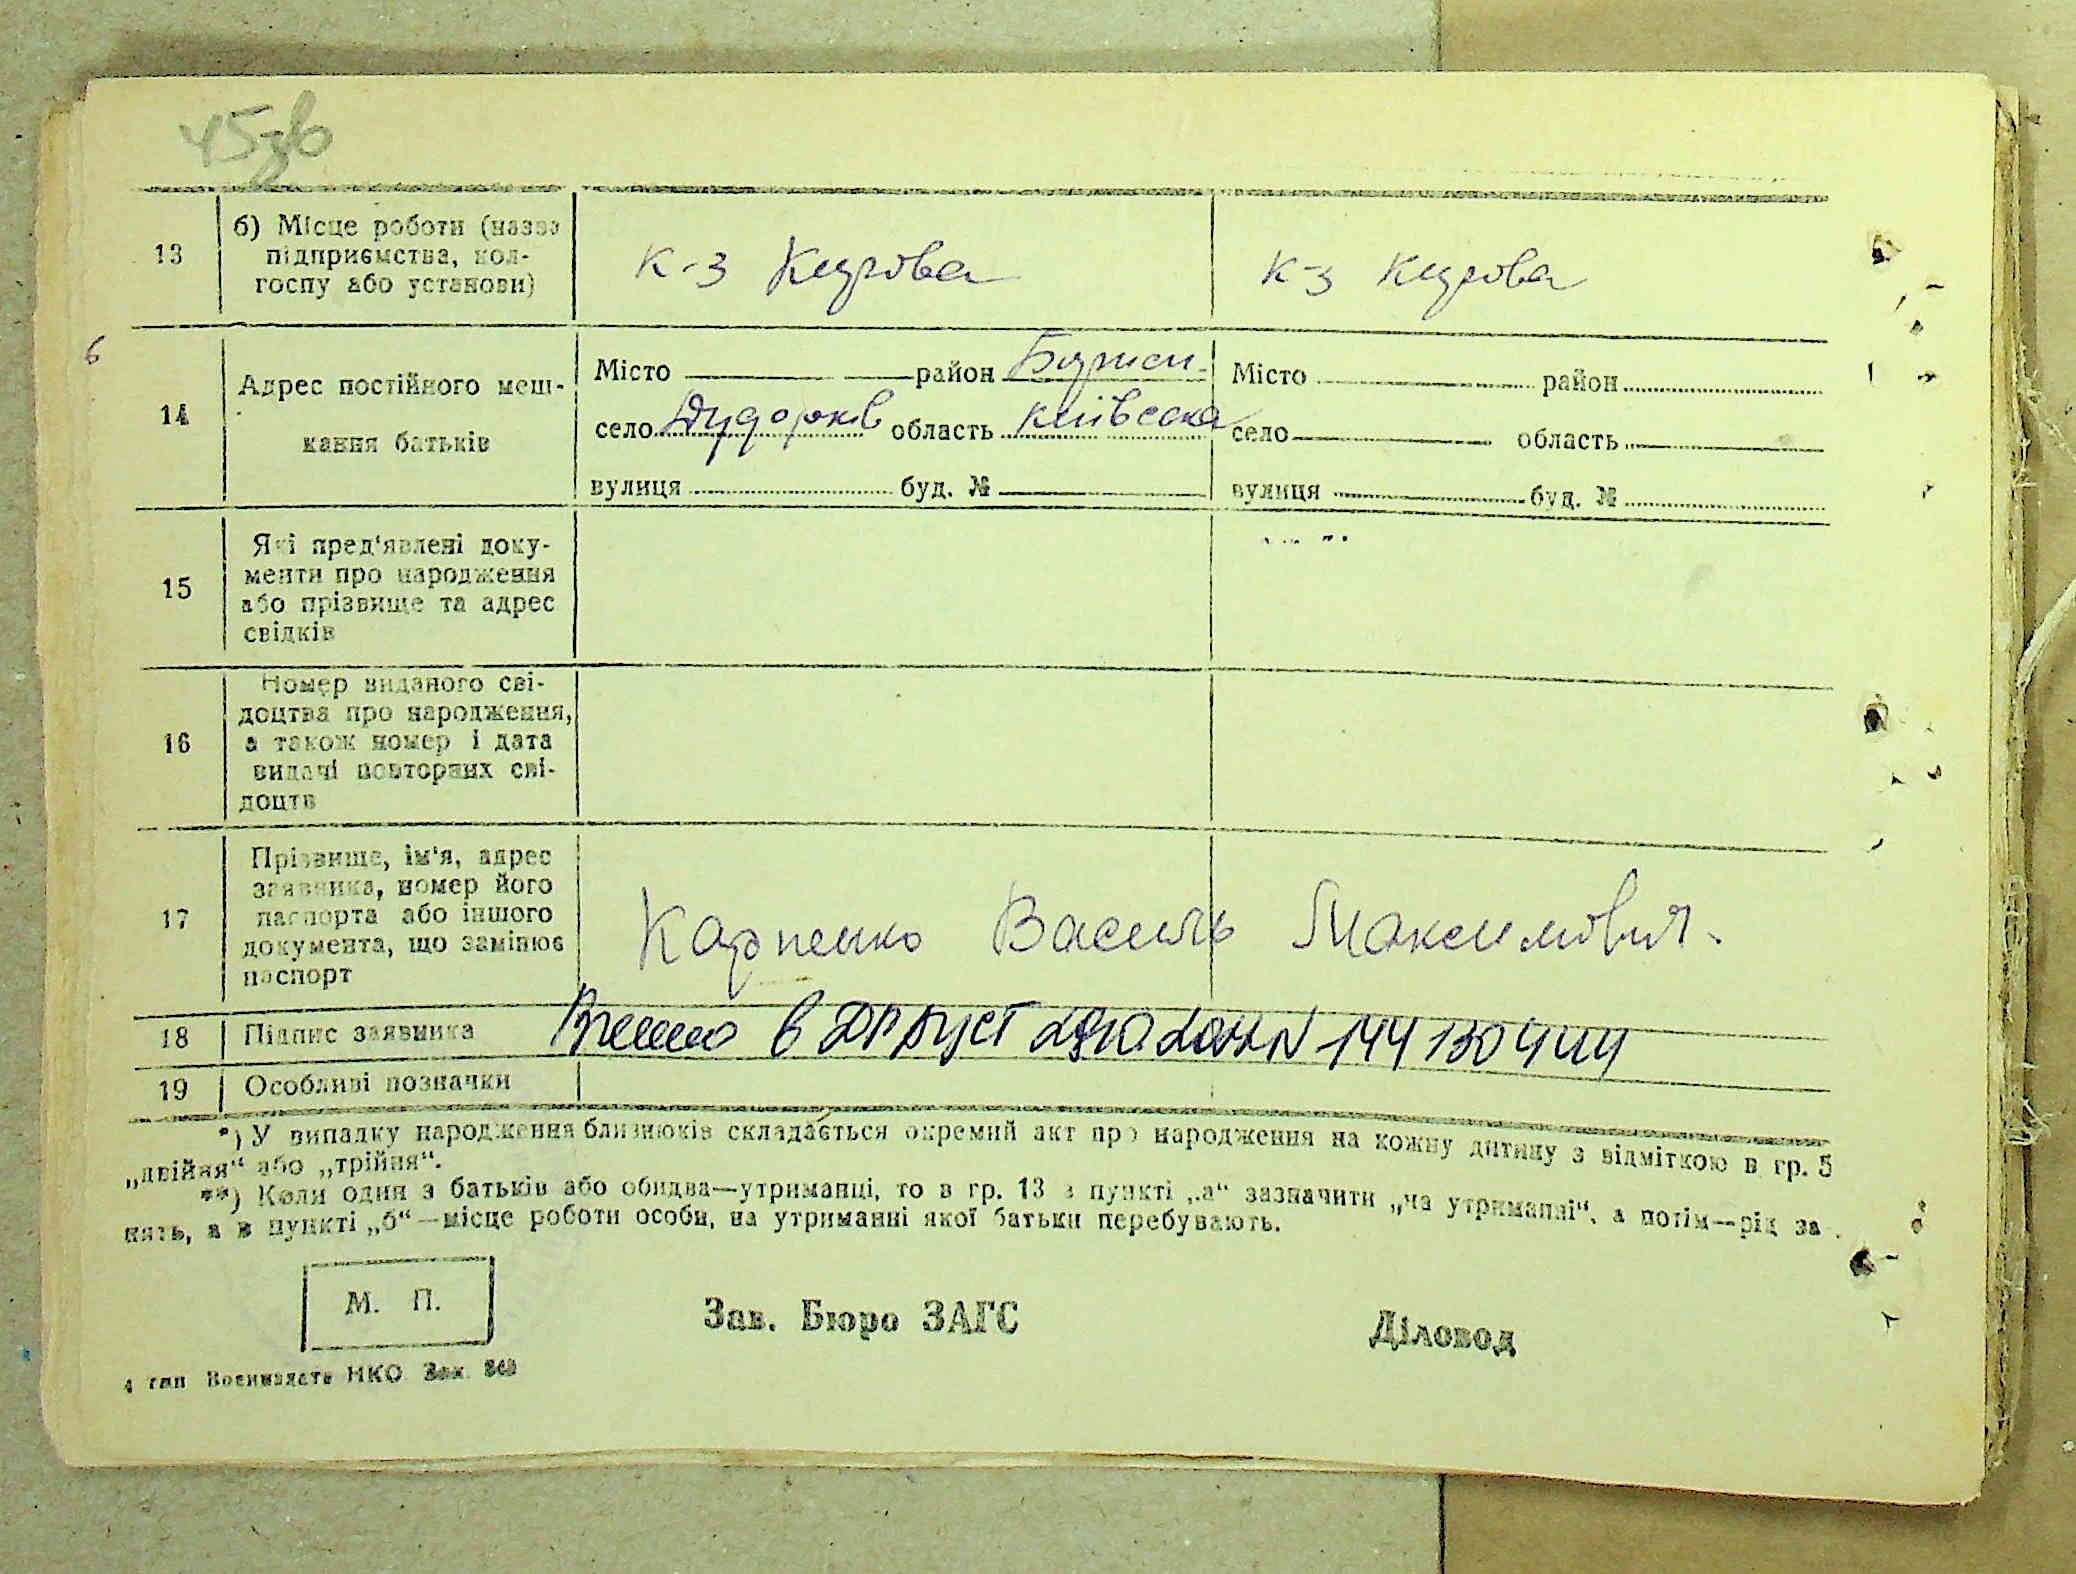 45зв
13
б) Місце роботи (назва
підприємства, кол-
госпу або установи)
к-з Кірова
к-з Кірова
6
14
Адрес постійного меш-
кання батьків
Місто район Бориси-
село Дударків область Київська
вулиця буд. №
Місто район
село область
вулиця буд. №
15
Які пред'явлені доку-
менти про народження
або прізвище та адрес
свідків
16
Номер виданого сві-
доцтва про народження,
а також номер і дата
видачі повторних сві-
доцтв
17
Прізвище, ім'я, адрес
заявника, номер його
паспорта або іншого
документа, що замінює
паспорт
Карпенко Василь Максимович.
18
Підпис заявника
в №144130444
19
Особливі позначки
*) У випадку народження близнюків складається окремий акт про народження на кожну дитину з відміткою в гр. 5
„двійня“ або „трійня“.
**) Коли один з батьків або обидва—утриманці, то в гр. 13 в пункті „а“ зазначити „на утриманні“, а потім—рід за
нять, а в пункті „б“—місце роботи особи, на утриманні якої батьки перебувають.
М. П.
Зав. Бюро ЗАГС
Діловод
4 тип Воениздата НКО Зак. 868